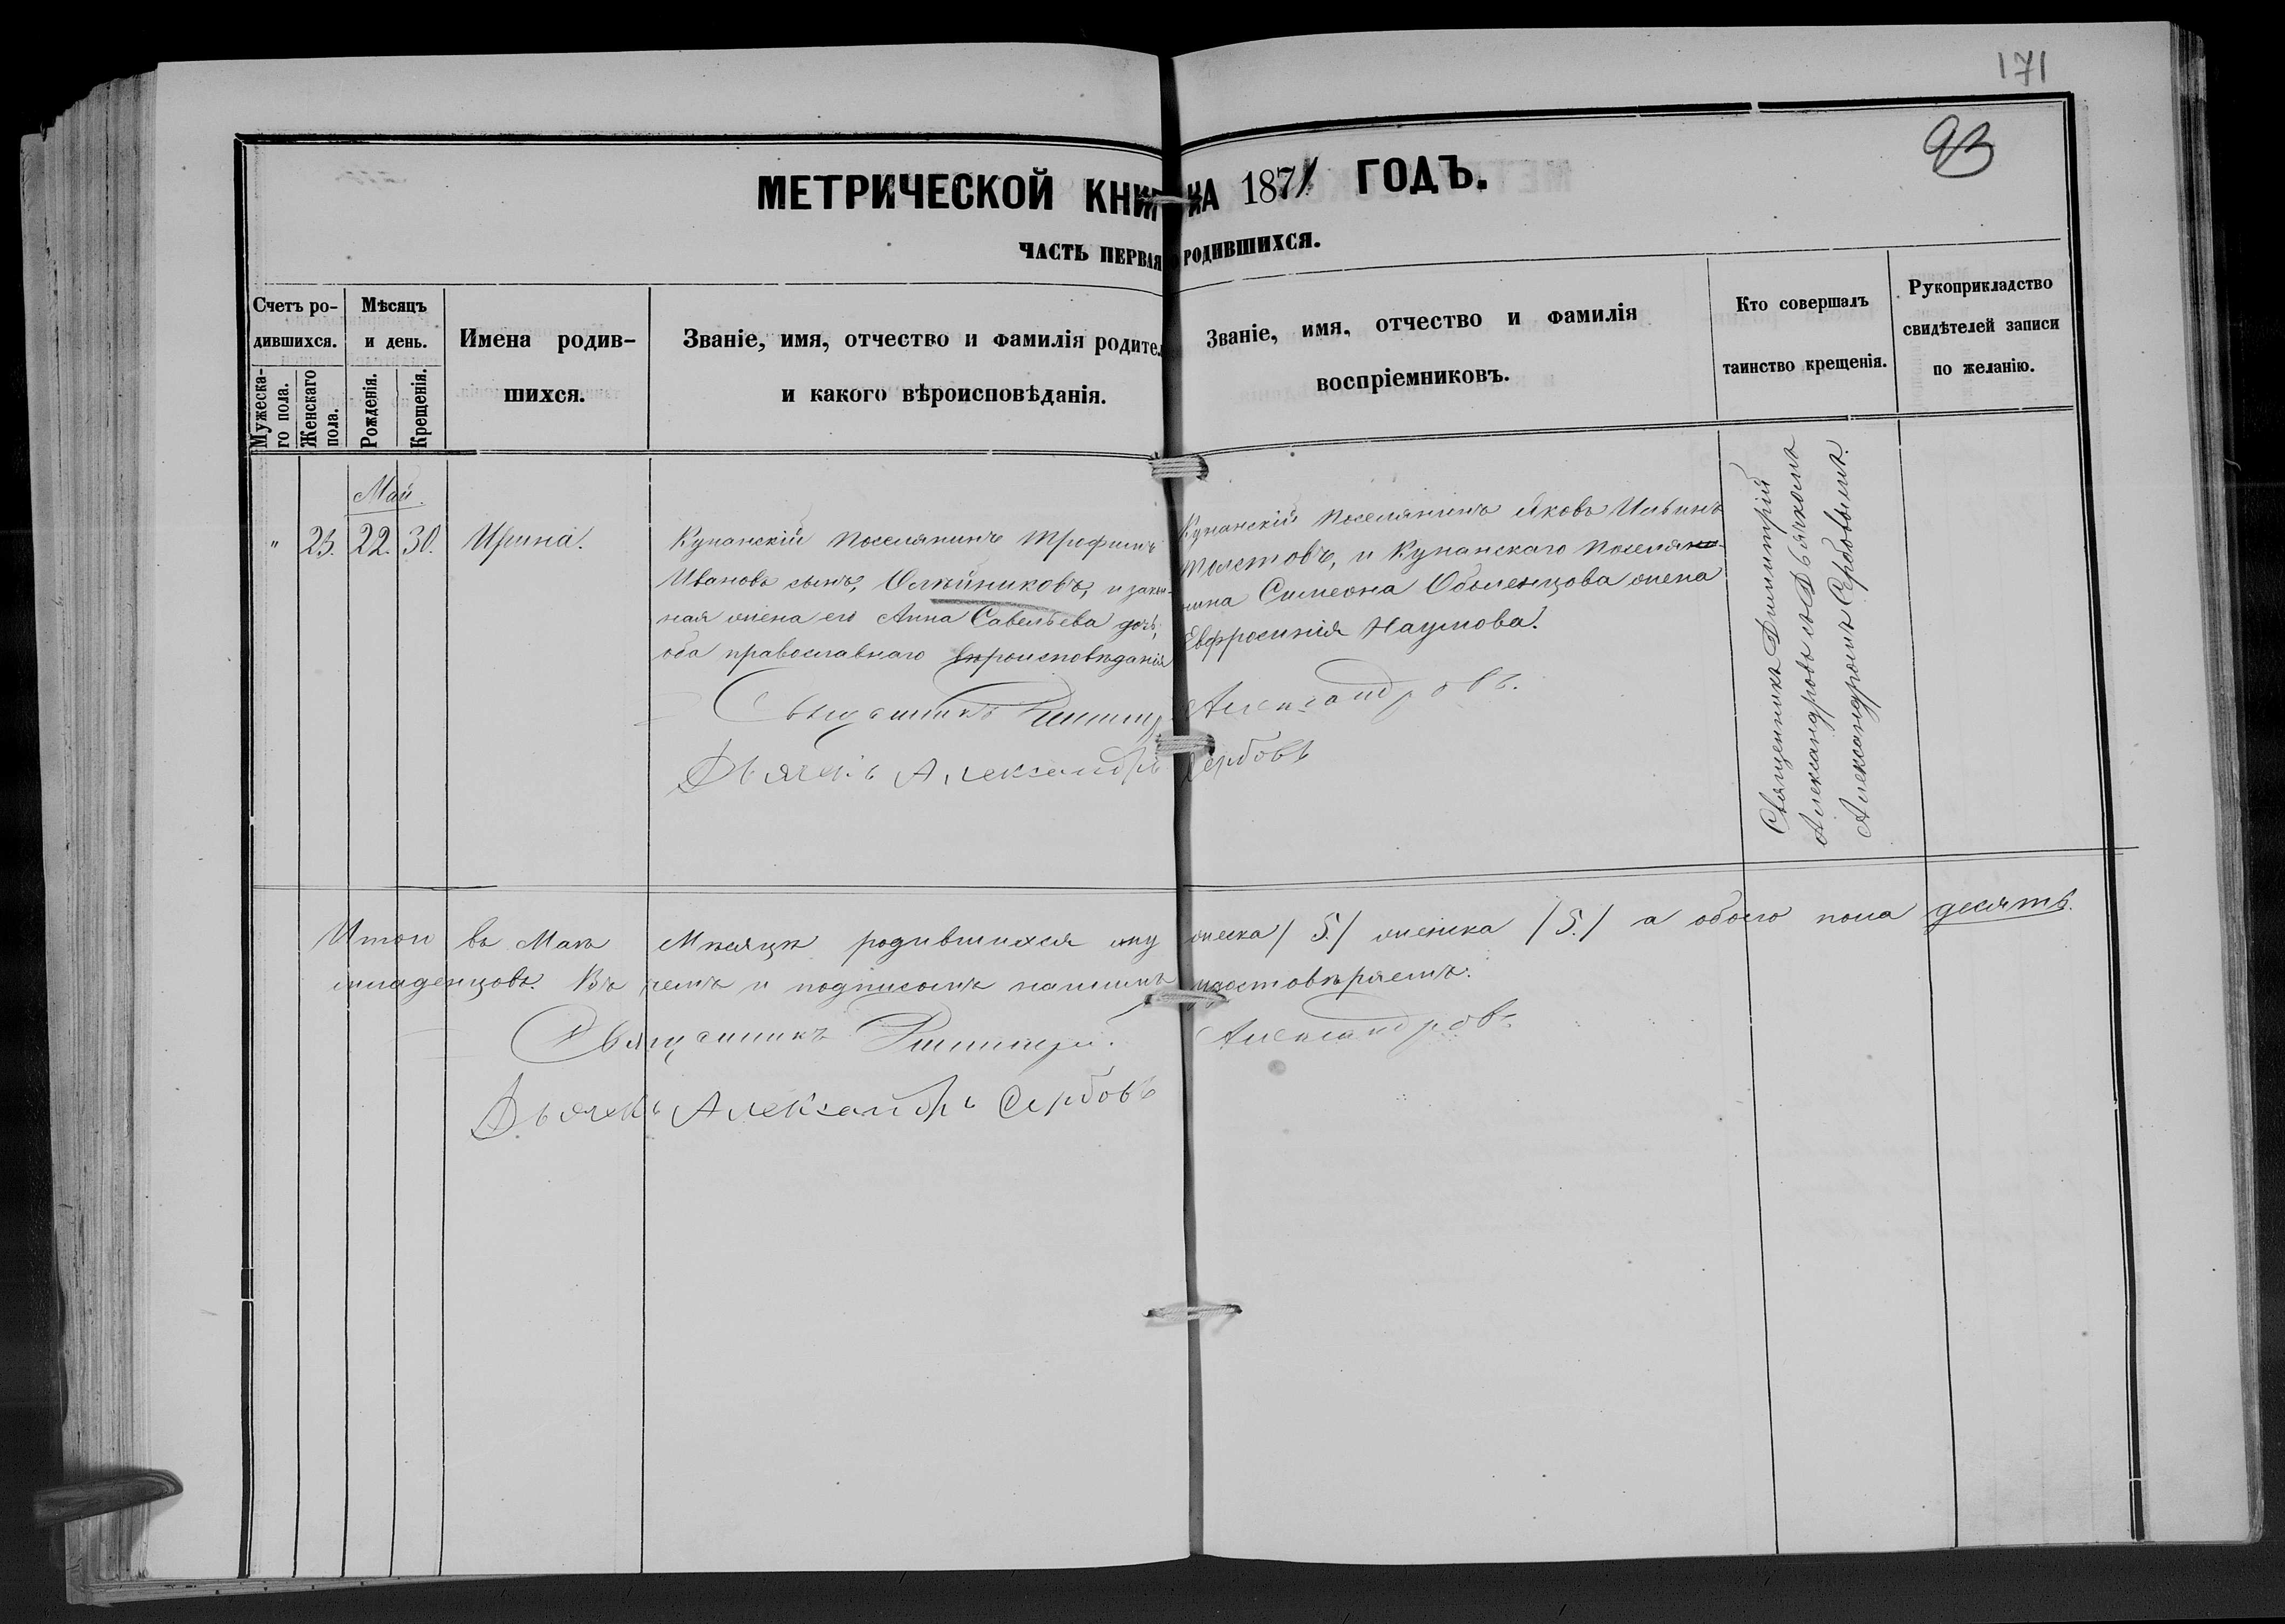 171
93
МЕТРИЧЕСКОЙ КНИГИ НА 1871 ГОДЪ.
ЧАСТЬ ПЕРВАЯ О РОДИВШИХСЯ.
Счетъ ро-
дившихся.
Мужеска-
го пола.
Женскаго
пола.
Мѣсяцъ
и день.
Рожденія.
Крещенія.
Имена родив-
шихся.
Званіе, имя, отчество и фамилія родител
и какого вѣроисповѣданія.
Званіе, имя, отчество и фамилія
воспріемниковъ.
Кто совершалъ
таинство крещенія.
Рукоприкладство
свидѣтелей записи
по желанію.
Май.
" 25. 22. 30. Ирина.
Купанскій поселянинъ Трофимъ
Ивановъ сынъ, Олѣйниковъ, и закон-
ная жена его Анна Савельева дочь,
оба православнаго вѣроисповѣданія
Купанскій поселянинъ Яковъ Ильинъ
Толстовъ, и Купанскаго поселя-
нина Симеона Оболенцова жена
Евфросинія Наумова.
Священникъ Димитрій
Александровъ съ Дьячкомъ
Александромъ Сербовымъ.
Священникъ Димитр Александровъ.
Дьячекъ Александръ Сербовъ
Итого въ Маѣ Мѣсяцѣ родившихся мужеска /5./ женска /5./ а обоего пола десять.
младенцовъ. Въ чемъ и подписомъ нашимъ удостовѣряемъ.
Священникъ Димитрій Александровъ.
Дьячекъ Александръ Сербовъ